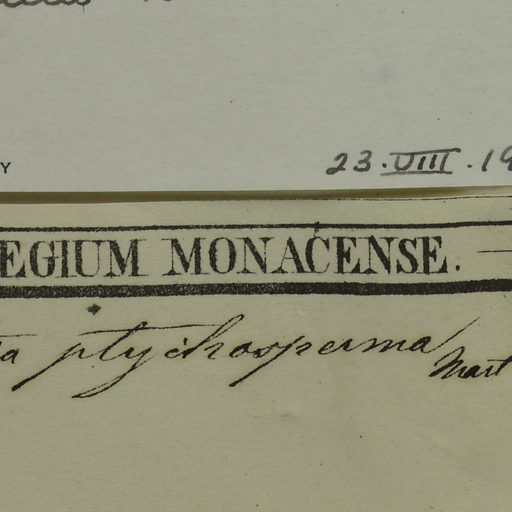 Y
23.VIII.19
EGIUM MONACENSE.
a ptychosperma Mart